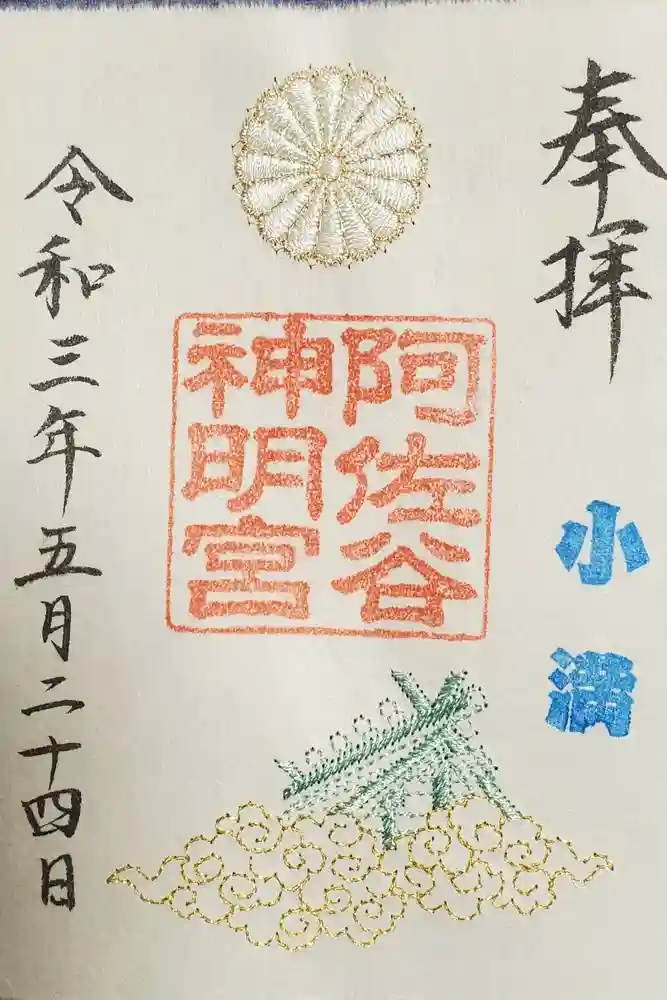 奉拝
小満
阿佐谷
神明宮
令和三年五月二十四日